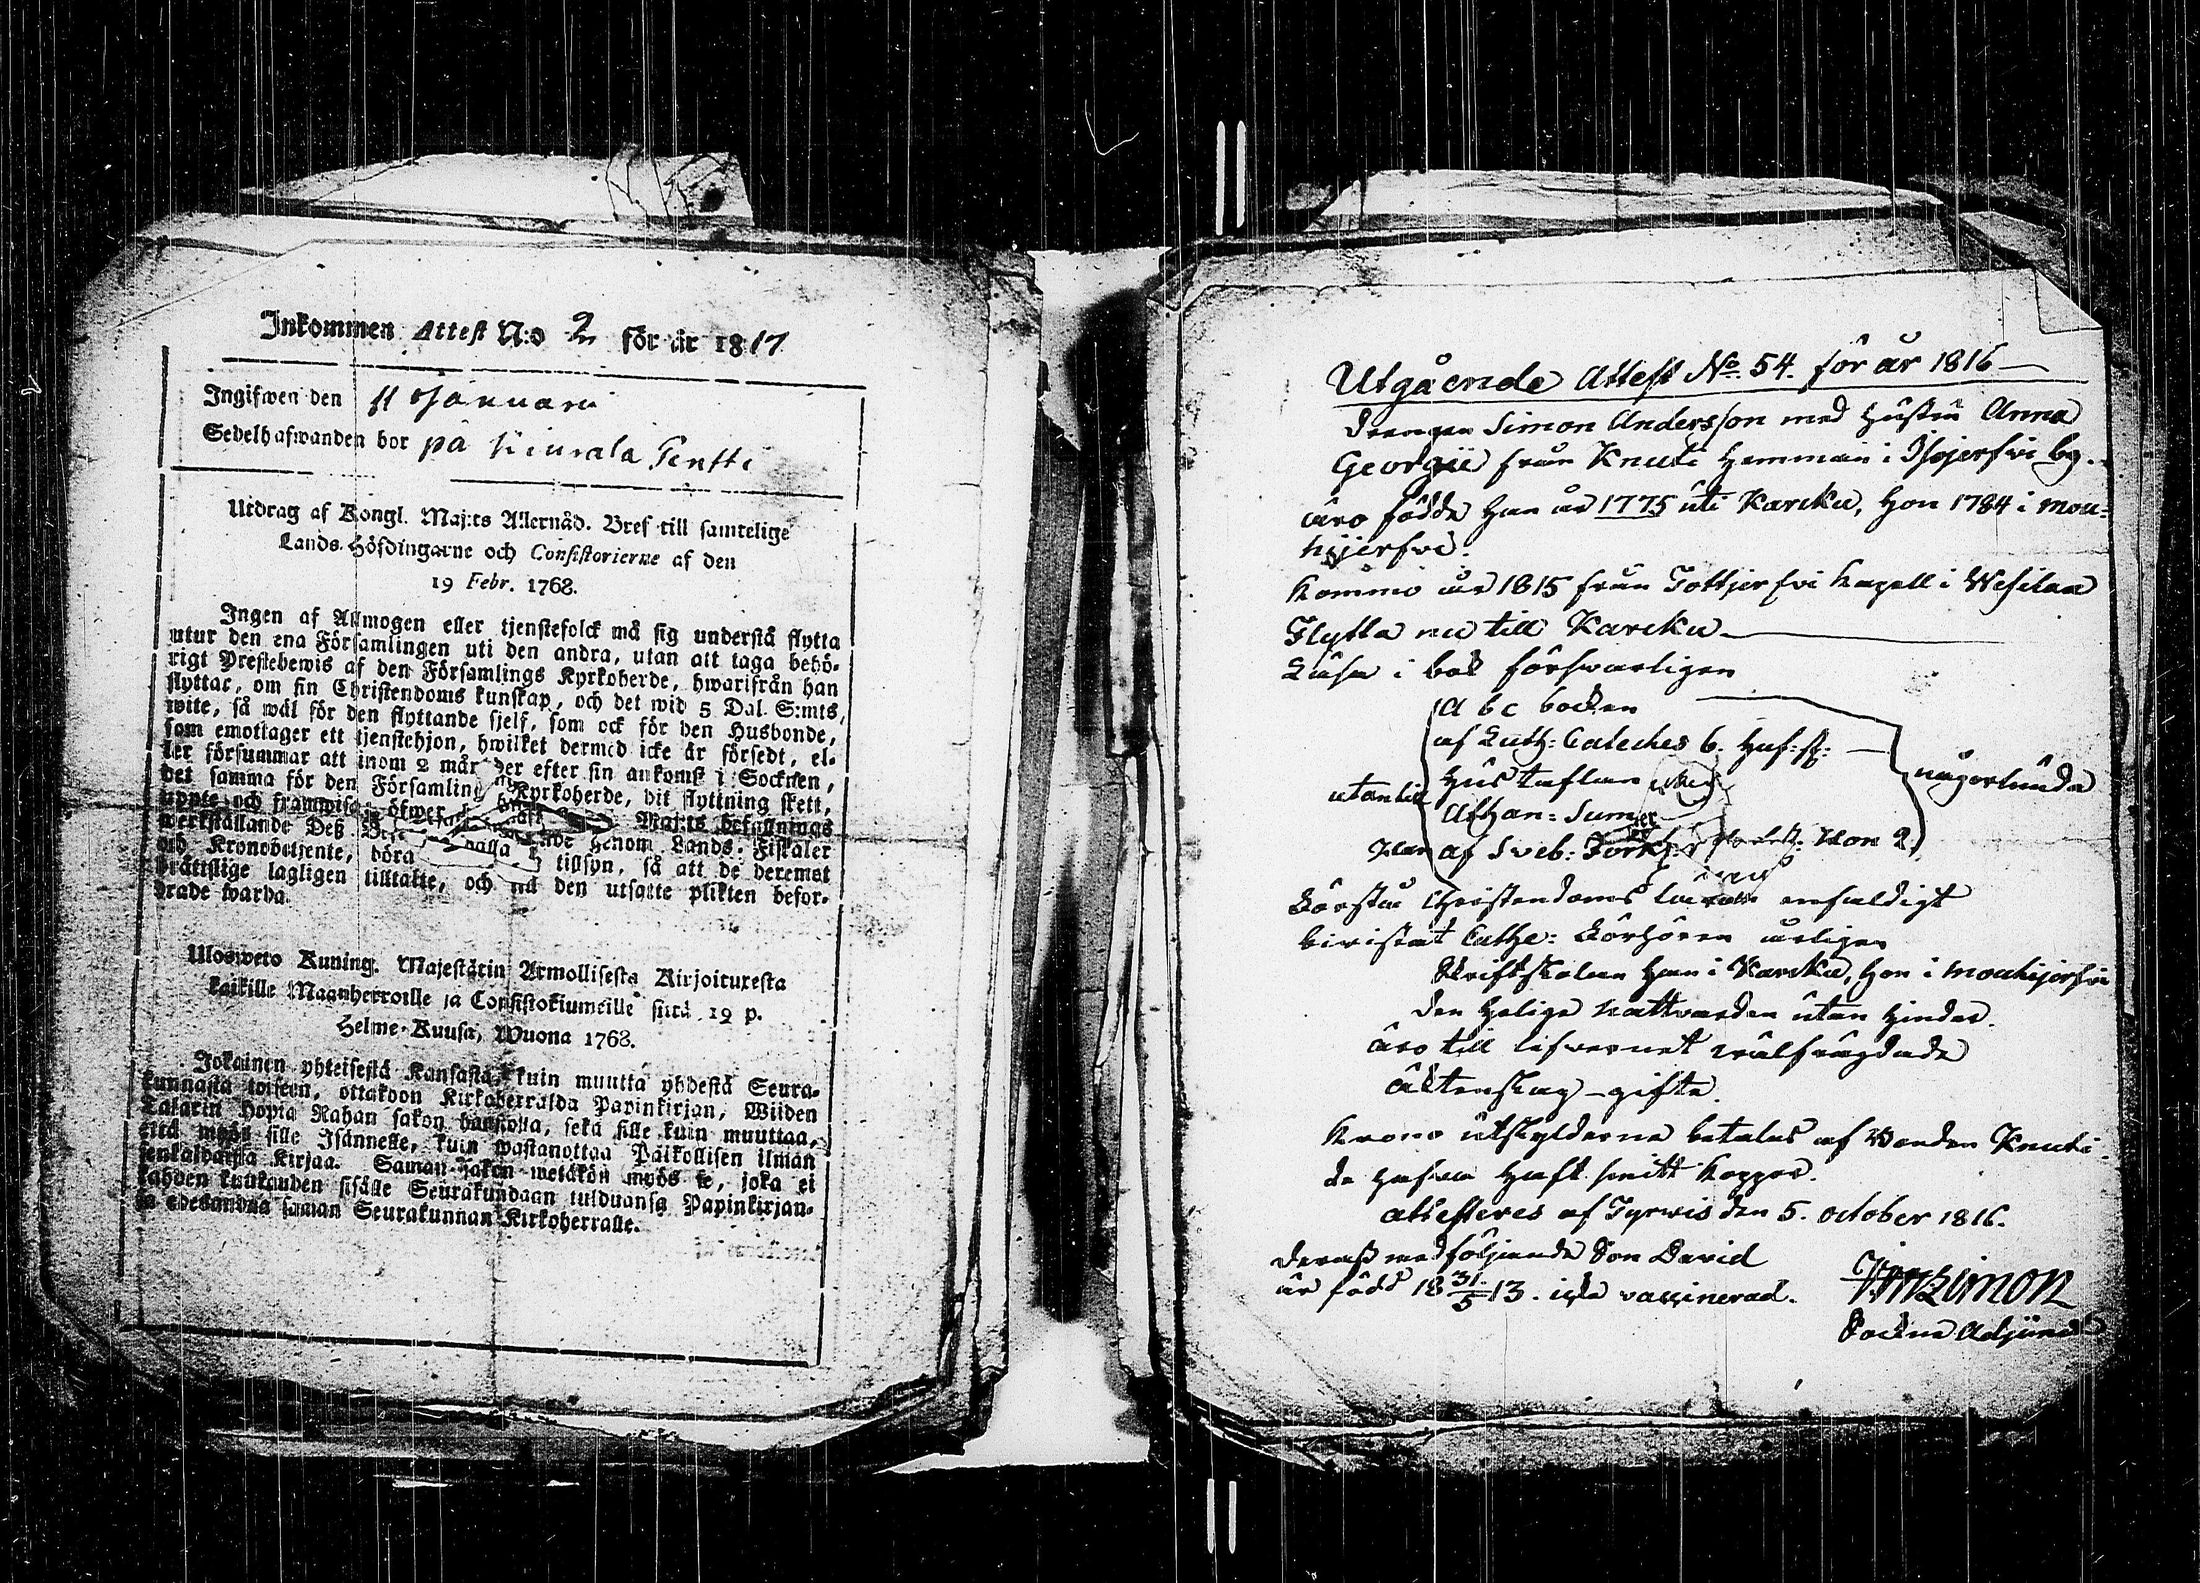 Inkommen Attest N:o 2 för år 1817
Ingifwen den 11 Januari
Sedelhafwanden bor på Kiurala Pentti
Utdrag af Kongl. Maj:ts Allernåd. Bref till samtelige
Lands-Höfdingarne och Consistorierne af den
19 Febr. 1768.
Ingen af Allmogen eller tjenstefolck må sig understå flytta
utur den ena Församlingen uti den andra, utan att taga behö-
rigt Prestebewis af den Församlings Kyrkoherde, hwarifrån han
flyttar, om sin Christendoms kunskap, och det wid 5 Dal. S:mts,
wite, så wäl för den flyttande sjelf, som ock för den Husbonde,
som emottager ett tjenstehjon, hwilket dermed icke är försedt, el-
ler försummar att inom 2 månader efter sin ankomst i Socknen,
det samma för den Församlings Kyrkoherde, dit flyttning skett,
uppte och framwisa; öfwer Maj:ts befallnings
werkställande Deß genom Lands-Fiskaler
och Kronobetjente, böra hafwa tillsyn, så att de deremot
brättslige lagligen tilltalte, och til den utsatte plikten befor-
drade warda.
Ulosweto Kuning. Majestätin Armollisesta Kirjoituxesta
kaikille Maanherroille ja Consistoriumeille siitä 19 p.
Helme-Kuusa, Wuona 1768.
Jokainen yhteisestä Kansasta, kuin muutta yhdestä Seura-
kunnasta toiseen, ottakoon Kirkoherralda Papinkirjan, Wiiden
Talarin Hopia Rahan sakon haastolla, sekä sille kuin muuttaa,
että myös sille Isännelle, kuin wastanottaa Palkollisen ilman
senkaldaista Kirjaa. Saman Sakon wetäkön myös se, joka ei
kahden kuukauden sisälle Seurakundaan tulduansa Papinkirjan-
sa edesanna saman Seurakunnan Kirkoherralle.
Utgående Attest No. 54. för år 1816
Drengen Simon Andersson med Hustru Anna
Georgii från Knuti Hemman i Isojerfvi by.
äro födde Han år 1775 uti Karcku, Hon 1784 i Mou-
hijerfvi.
Kommo år 1815 från Tottjerfvi Kapell i Wesilax
Flytta nu till Karcku
Läsa i bok försvarligen
A b c boken
af Luth: Cateches 6. Huf:st:
Hustaflan
utantill
någorlunda
Athan: Sumb:
Han af Sveb: Förkl: Hon 2.
Förstår Christendoms läran enfaldigt
bivistat Cathe: Förhören årligen
Skriftskolan Han i Karcku, Hon i Mouhijerfvi
Den Helige nattvarden utan hinder.
äro till lefvernet välfrägdade
äktenskap - gifte.
Krono utskylderna betalas af Bonden Knuti.
de hafva haft smitt koppor.
attesteres af Tyrwis den 5. october 1816.
Deraß medföljande Son David
är född 18 31/5 13. icke vaccinerad.
Sockne Adjunct